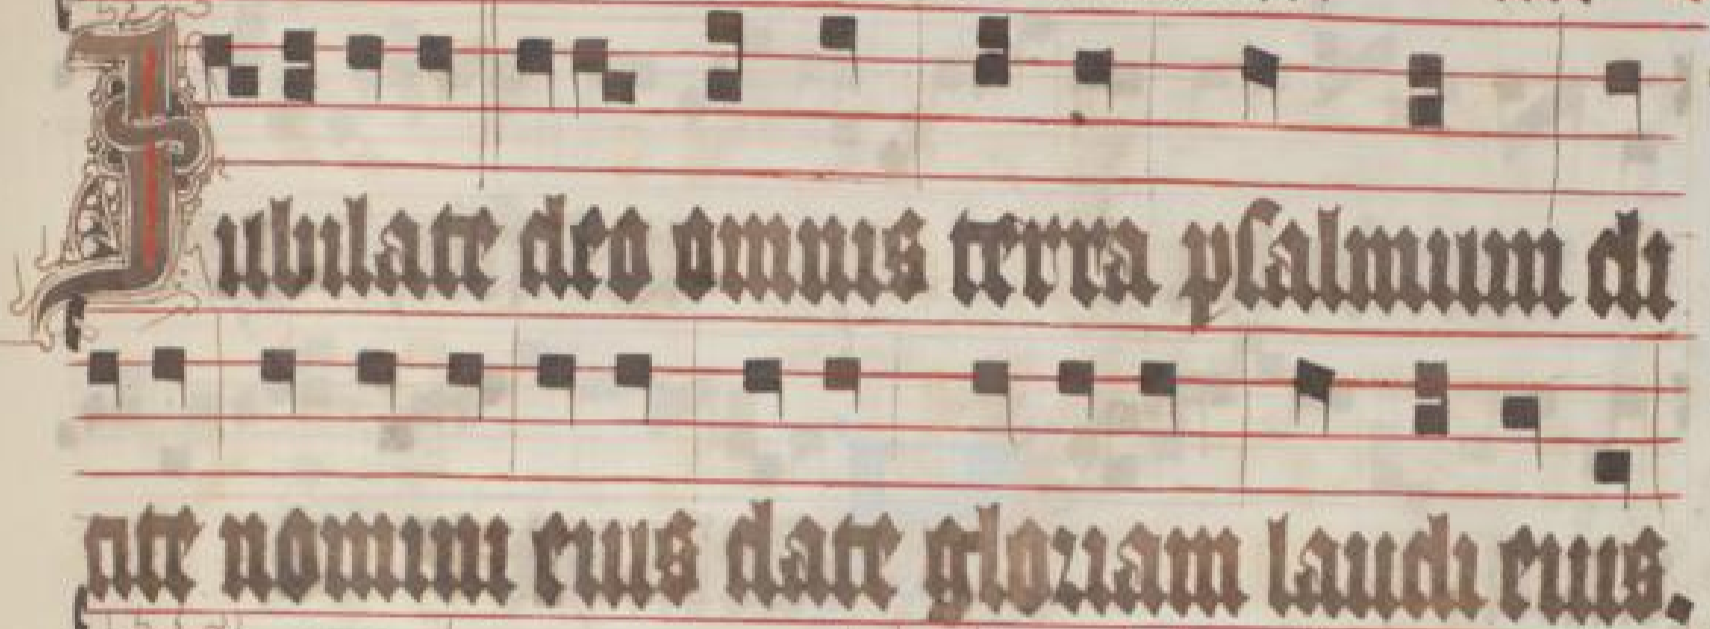 Iubilate deo omnis terra psalmum di
cite nomini eius date gloriam laudi eius.